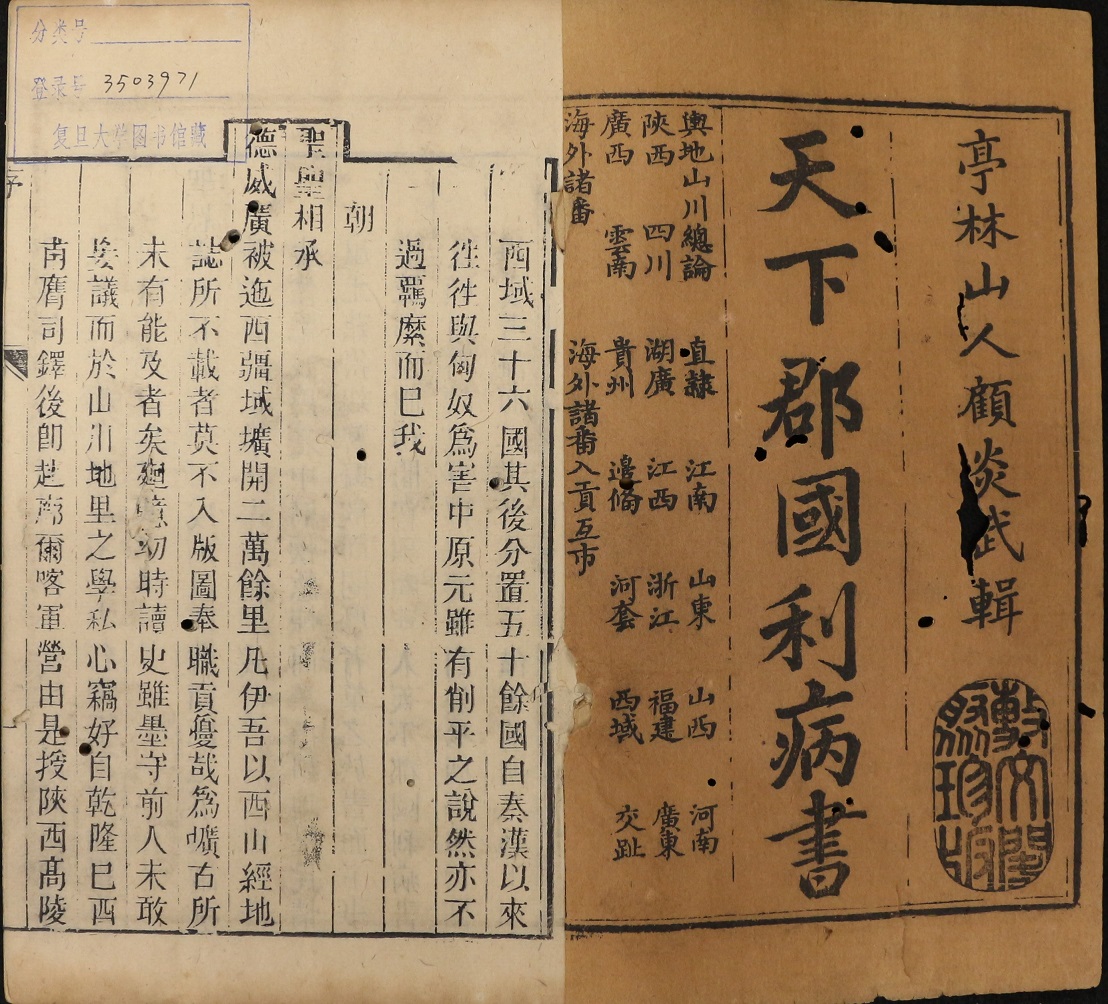 亭林山人顧炎武輯
敷文閣
聚珍板
天下郡國利病書
輿地山川總論 直隸 江南 山東 山西 河南
陝西 四川 湖廣 江西 浙江 福建 廣東
廣西 雲南 貴州 邊備 河套 西域 交趾
海外諸番 海外諸番入貢互市
西域三十六國其後分置五十餘國自秦漢以來
徃徃與匈奴爲害中原元雖有削平之說然亦不
過羈縻而巳我
朝
聖聖相承
德威廣被迤西疆域壙開二萬餘里凡伊吾以西山經地
誌所不載者莫不入版圖奉職貢懮哉爲曠古所
未有能及者矣廻憶幼時讀史雖墨守前人未敢
妄議而於山川地里之學私心竊好自乾隆巳酉
南膺司鐸後卽赴廓爾喀軍營由是授陝西高陵
序
一
分类号
登录号 3503971
复旦大学图书馆藏